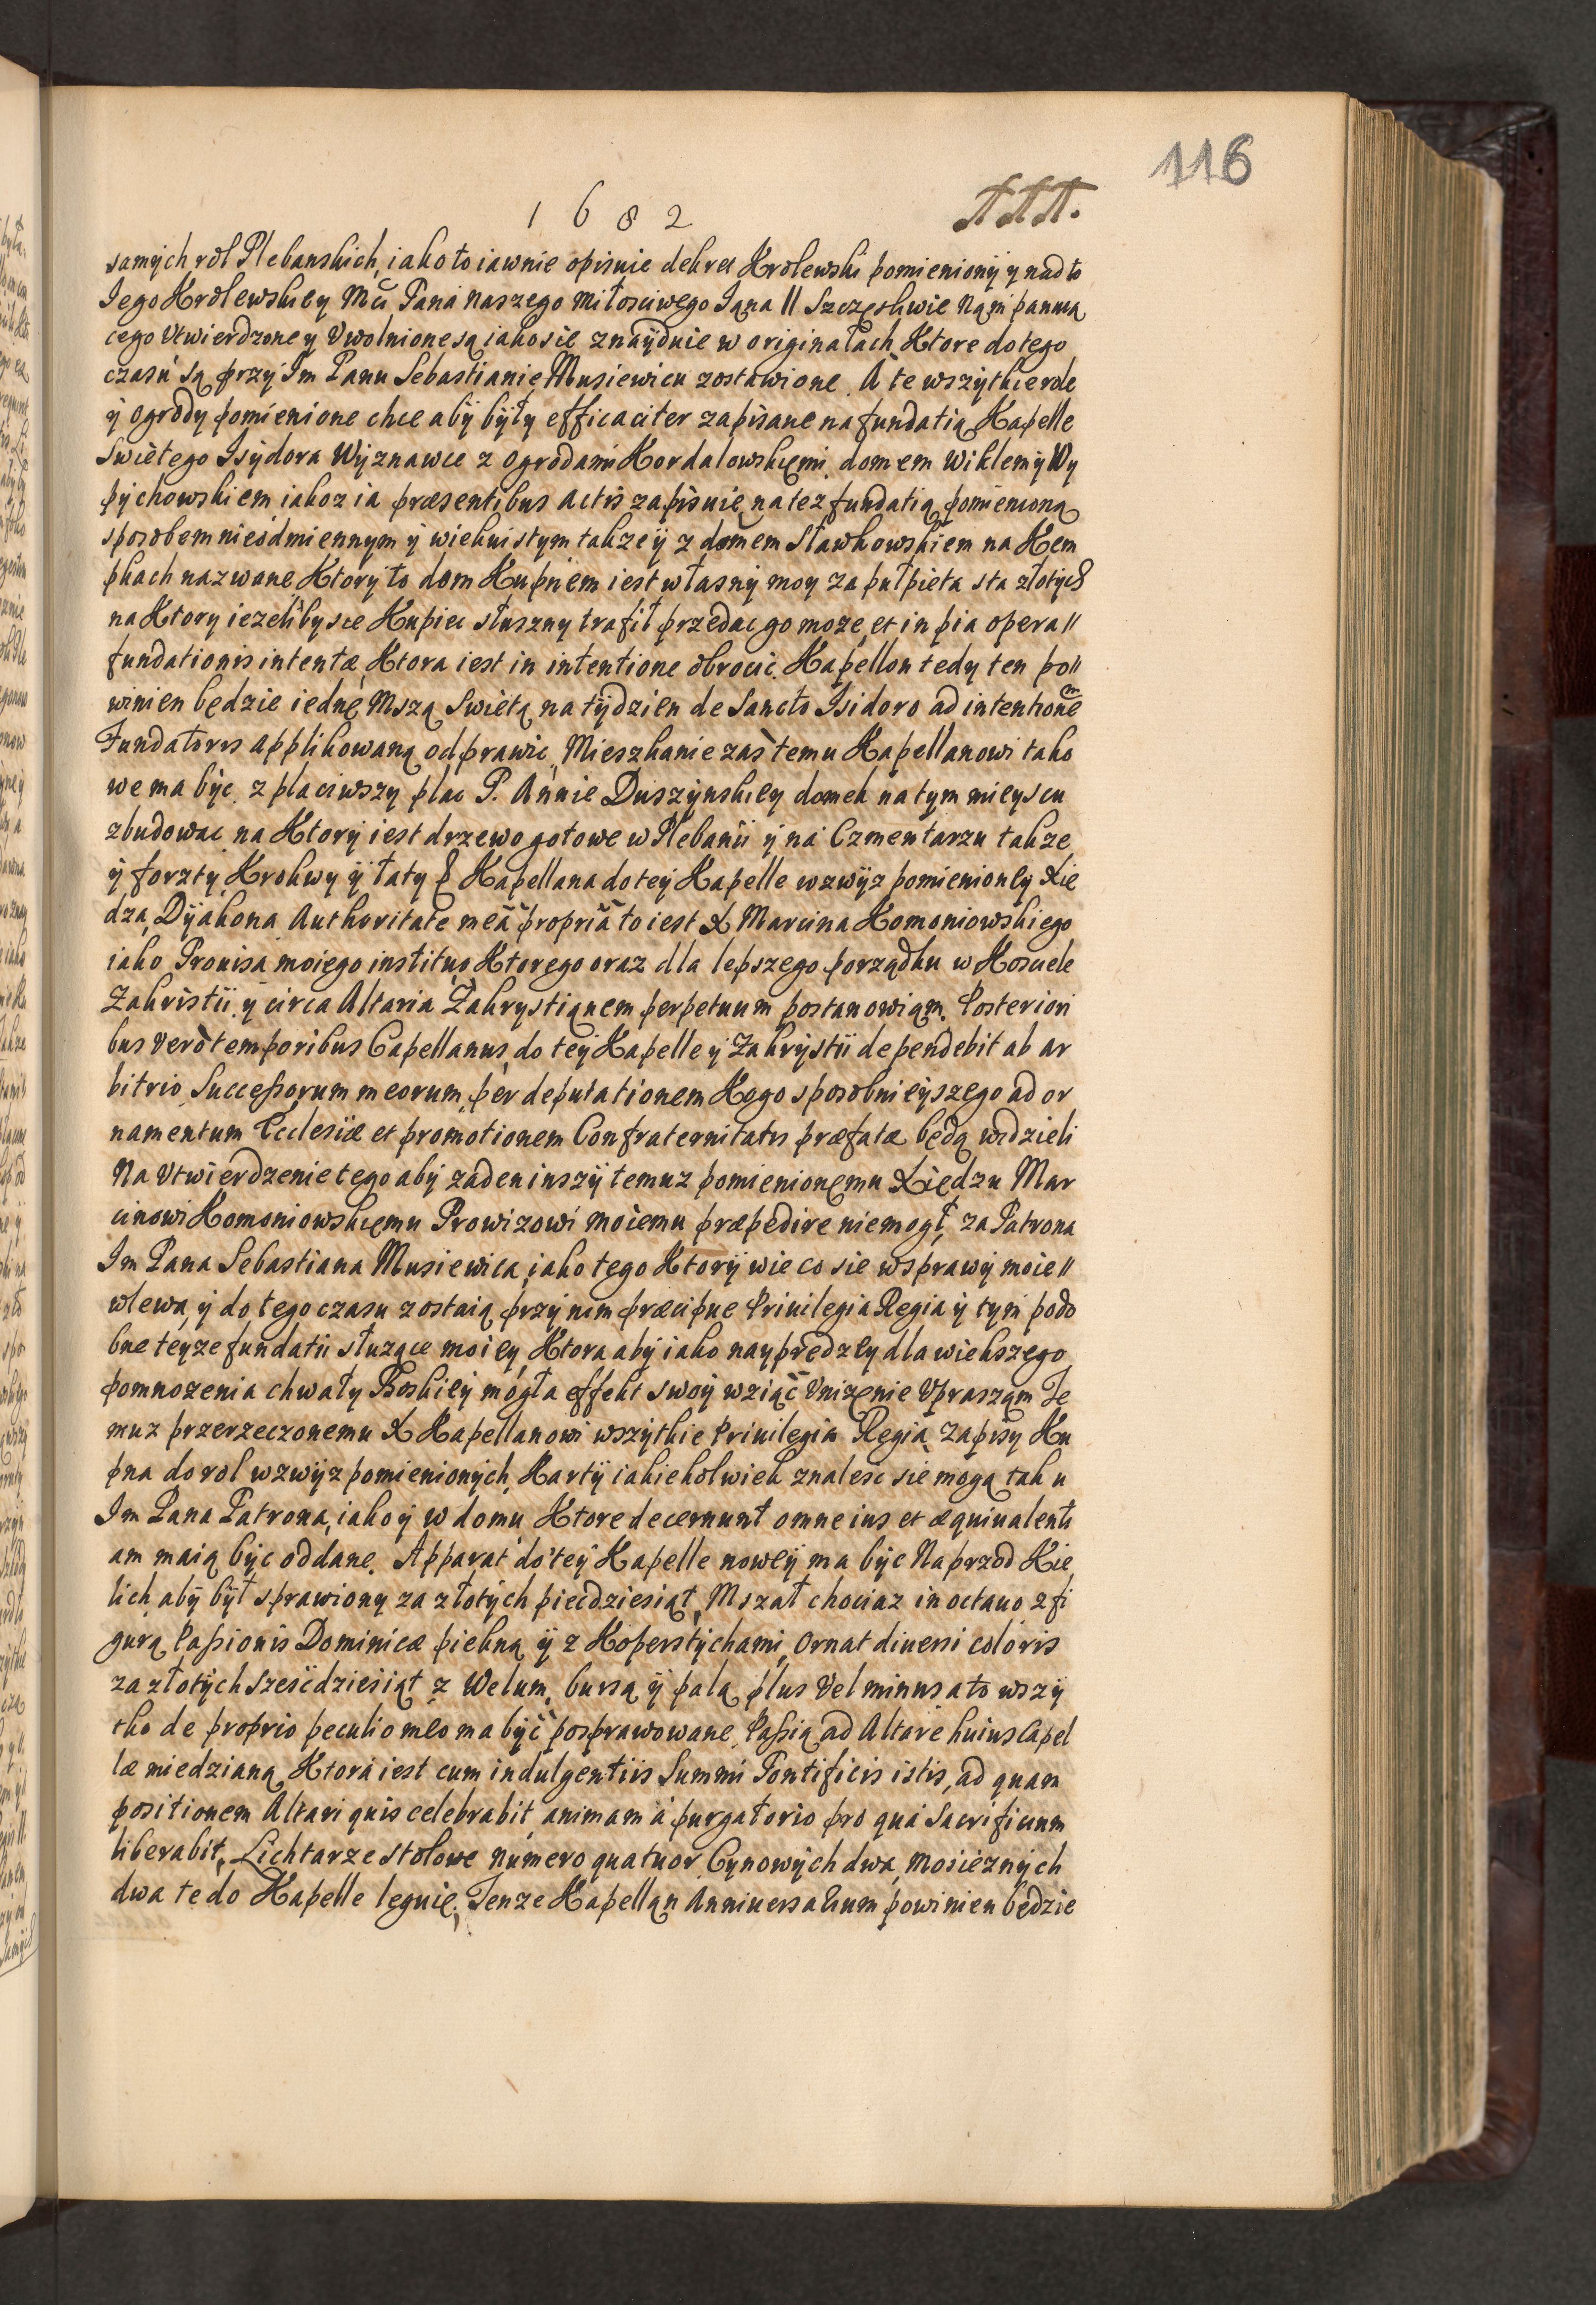 116
1682
AAA.
samych rol Plebanskich, iako to iawnie opisuie dekret Krolewski pomieniony y nadto
Iego Krolewskiey Mci Pana Naszego Miłosciwego Iana II Szczęsliwie Nąm panuią
cego Utwierdzone y Uwolnione są iako sie znayduie w originałach Ktore do tego
czasu są przy Im Panu Sebastianie Musiewicu zostawione. A te wszytkie role
y ogrody pomienione chce aby były efficaciter zapisane na fundatią Kapelle
Swietego Isydora Wyznawce z ogrodami Kordalowskiemi domem Wiklem y Wy
pychowskiem iakoz ia præsentibus actis zapisuie na tez fundatią pomienioną
sposobem nieodmiennym y wiekuistym takze y z domem Sławkowskiem na Kem
pkach nazwane Ktory to dom Kupnem iest własny moy za pułpieta sta złotych
na Ktory iezeliby sie Kupiec słuszny trafił przedac go moze, et in pia opera //
fundationis intentæ Ktora iest in intentione obrocic. Kapellon tedy ten po //
winien będzie iednę Mszą Swietą na tydzien de Sancto Isidoro ad intentionem
Fundatoris applikowaną odprawic, Mieszkanie zas temu Kapellanowi tako
we ma być. zplaciwszy plac P. Annie Duszynskiey domek na tym mieyscu
zbudowac na Ktory iest drzewo gotowe w Plebanii y na Czmentarzu takze
y forzty, Krokwy y łaty & Kapellana do tey Kapelle wzwyz pomienioney Xie
dza Dyakona Authoritate meâ propriâ to iest X Marcina Komoniowskiego
iako Prouisa moiego instituo Ktorego oraz dla lepszego porządku w Kosciele
Zakristii y circa Altaria Zakrystianem perpetuum postanowiąm. Posteriori
bus Vero temporibus Capellanus do tey Kapelle y Zakrystii dependebit ab ar
bitrio Successorum meorum per deputationem Kogo sposobnieyszego ad or
namentum Ecclesiæ et promotionem Confraternitatis præfatæ będą widzieli
Na Utwierdzenie tego aby zaden inszy temuz pomienionęmu Xiędzu Mar
cinowi Komoniowskięmu Prowizowi moiemu præpedire niemogł, za Patrona
Im Pana Sebastiana Musiewica iako tego Ktory wie co sie w sprawy moie //
wlewa, y do tego czasu zostaią przy nim præcipue Priuilegia Regia y tym podo
bne teyze fundatii słuzące moiey, Ktora aby iako nayprędzey dla wiekszego
pomnozenia chwały Boskiey mogła effekt swoy wziąć Unizenie Uprasząm Te
muz przerzeczonemu X Kapellanowi wszytkie Priuilegia Regia Zapisy Ku
pna do rol wzwyz pomienionych, Karty iakiekolwiek znalesc sie mogą tak u
Im Pana Patrona, iako y w domu Ktore decernunt omne ius et æquiualenti
am maią być oddane. Apparat do tey Kapelle nowey ma być Naprzod Kie
lich aby był sprawiony za złotych piecdziesiąt, Mszał chociaz in octauo z fi
gurą Passionis Dominicæ piekną y z Koperstychami, Ornat diuersi coloris
za złotych szescdziesiąt z Welum, bursą y palą plus Vel minus a to wszy
tko de proprio peculio meo ma być posprawowane, Passią ad Altare huius Capel
læ miedzianą, Ktora iest cum indulgentiis Summi Pontificis istis, ad quam
positionem Altari quis celebrabit, animam a purgatorio pro qua Sacrificium
liberabit, Lichtarze stolowe numero quatuor Cynowych dwa, Mosieznych
dwa te do Kapelle leguię, Tenze Kapellan Anniuersarium powinien będzie